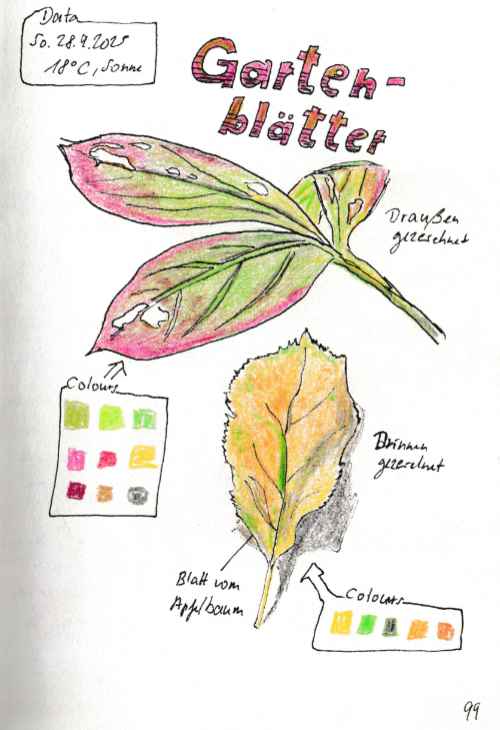 Data
So. 28.9.2025
18°C, Sonne
Garten-
blätter
Draußen
gezeichnet
Colours
Drinnen
gezeichnet
Blatt vom
Apfelbaum
Colours
99